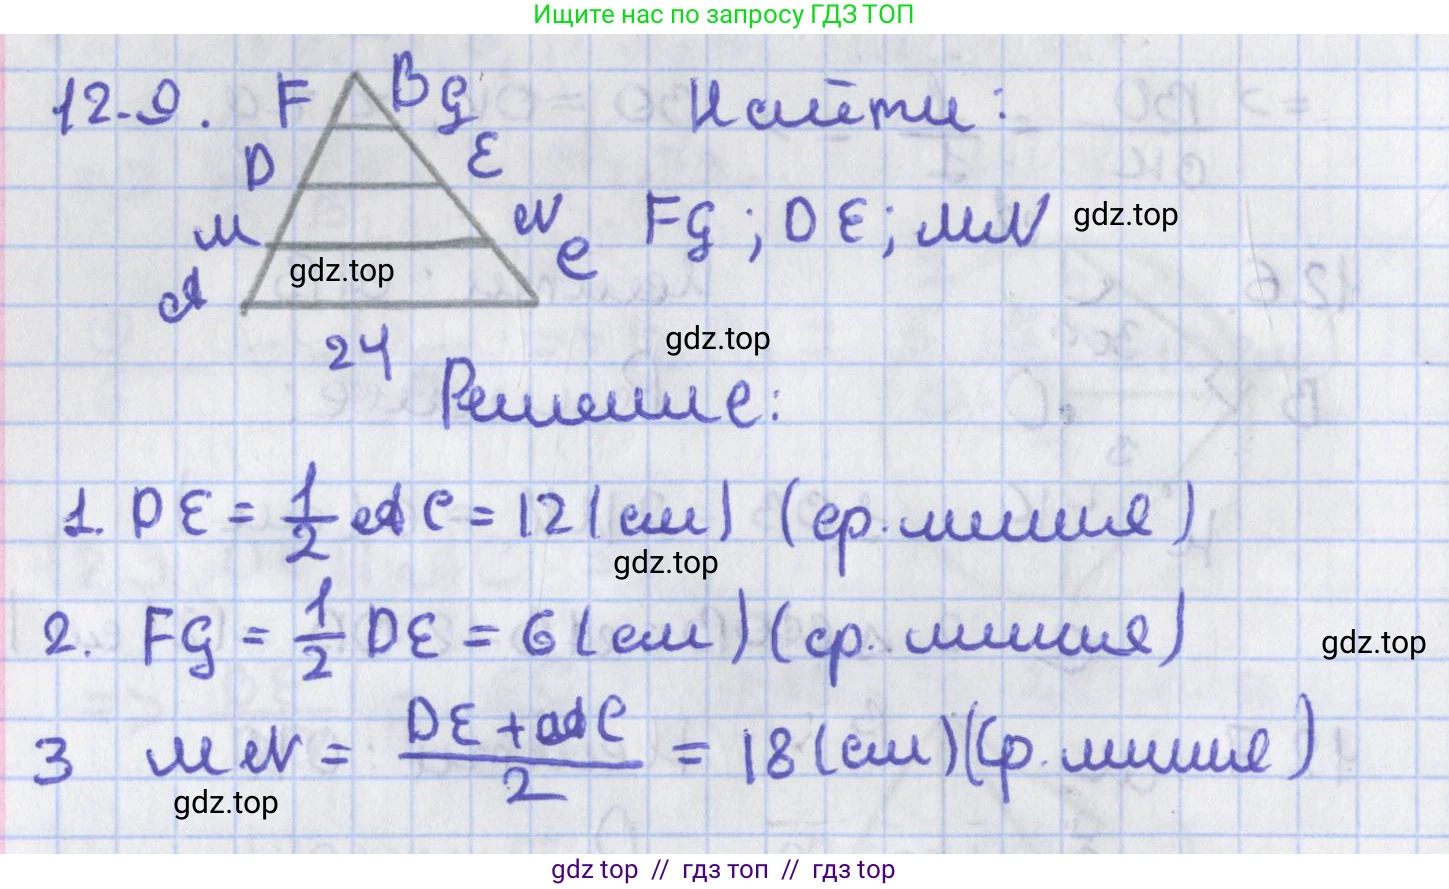 Ищите нас по запросу ГДЗ ТОП
12.9. F B G Найти:
D E
M N C FG; DE; MN gdz.top
A gdz.top
24 gdz.top
Решение:
1. DE = 1/2 AC = 12 (см) (ср. линия)
gdz.top
2. FG = 1/2 DE = 6 (см) (ср. линия)
gdz.top
3 MN = (DE + AC)/2 = 18 (см) (ср. линия)
gdz.top
gdz.top // гдз топ // гдз top